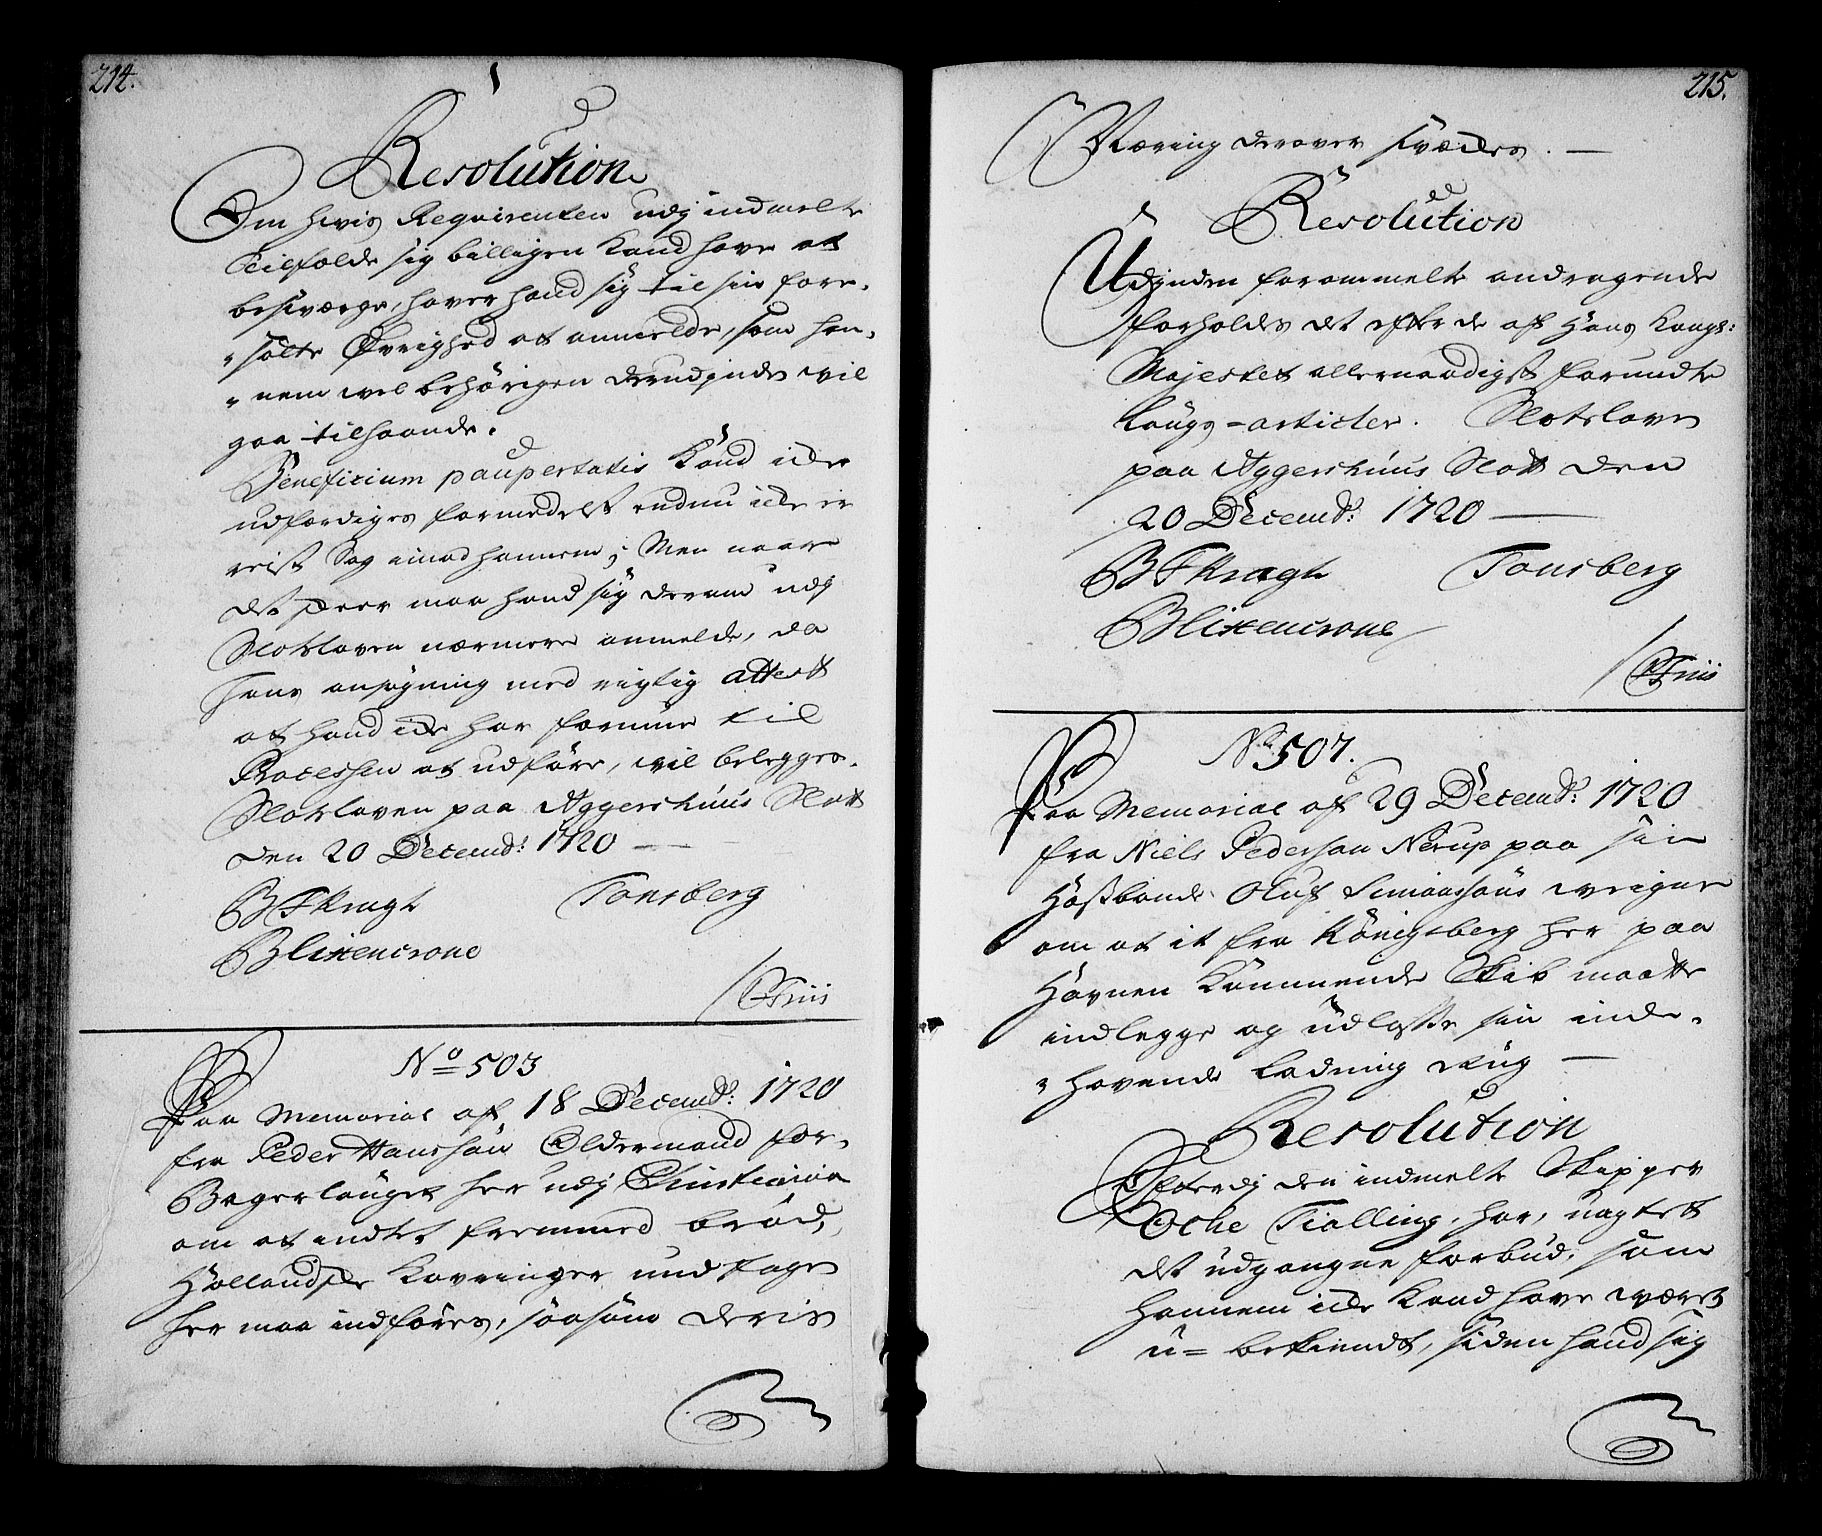 214.
Resolution
Om hvis Requirenten udj indmelte
Tilfælde sig billigen Kand have at
besværge, haver hand sig til sin fore-
"satte Øvrighed at anmelde, som han-
"nem vel behörigen derudjnden vil
gaa tilhaande.
Beneficium paupertatis Kand icke
udfærdiges formedelst endnu icke er
reist Sag imod hannem; Men naar
det skeer maa hand sig derom udj
Slotsloven nærmere anmelde, da
hans ansøgning med rigtig attest
at hand icke har formue til
Processen at udføre, vil belegges.
Slotsloven paa Aggershuus Slott
den 20 Decembr: 1720
B F Kragh Tonsberg
Blixencrone
/ C Friis
No 503
Paa Memorial af 18 Decembr: 1720
fra Peder Hanssön Oldermand for
Bagerlauget her udj Christiania
om at indtet fremmed bröd,
Hollandske Kavringer undtagen
her maa indføres, saasom deris
215.
Næring derover svæckes.
Resolution
Udjnden forommelte andragende
forholdes det efter de af Hans Kongl:
Majestet allernaadigst forundte
Laugs-articler. Slotsloven
paa Aggershuus Slott den
20 Decembr: 1720
B F Kragh Tonsberg
Blixencrone
/ C Friis
No 507.
Paa Memorial af 29 Decembr: 1720
fra Niels Pedersøn Nerup paa sin
Høsbonde Oluf Simonsøns vegne
om at it fra Königsberg her paa
Havnen Kommende Skib maatte
indlegge og udlosse sin inde-
"havende Ladning Rug
Resolution
Efterdj den indmelte Skipper
Ocke Tialling, har, uagtet
det udgangne forbud, som
hannem icke Kand have været
u=bekiendt, siden hand sig